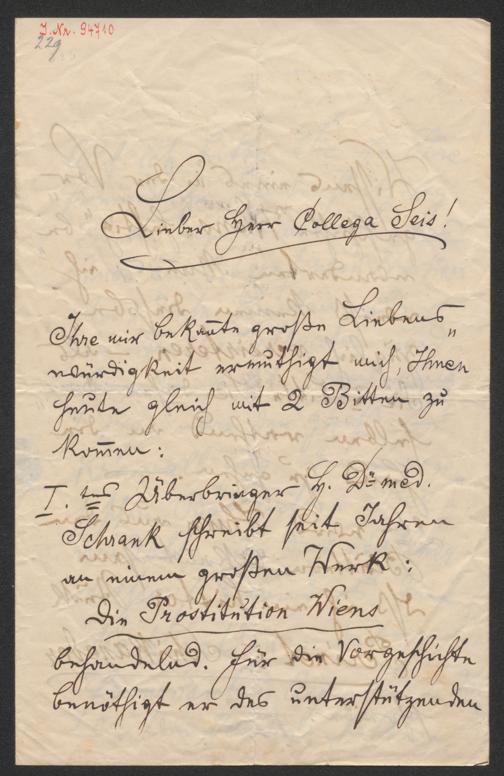 J. Nr. 94710
229
Lieber Herr Collega Seis!
Ihre mir bekan̄te große Liebens„
würdigkeit ermuthigt mich, Ihnen
heute gleich mit 2 Bitten zu
kom̄en:
I. tens Überbringer H. Dr. med.
Schrank schreibt seit Jahren
an einem großen Werk:
Die Prostitution Wiens
behandelnd. Für die Vorgeschichte
benöthigt er des unterstützenden